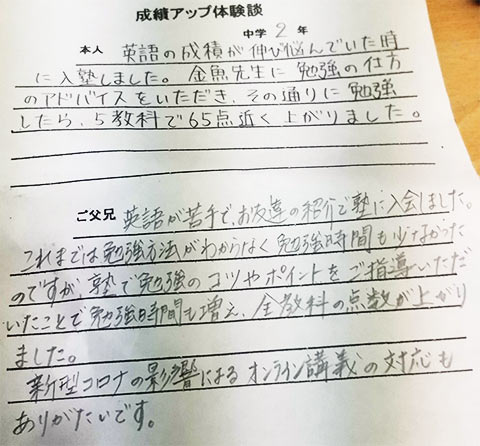 成績アップ体験談
中学2年
本人 英語の成績が伸び悩んでいた時
に入塾しました。金魚先生に勉強の仕方
のアドバイスをいただき、その通りに勉強
したら、5教科で65点近く上がりました。
ご父兄 英語が苦手で、お友達の紹介で塾に入会しました。
これまでは勉強方法がわからなく勉強時間も少なかった
のですが、塾で勉強のコツやポイントをご指導いただ
いたことで勉強時間も増え、全教科の点数が上がり
ました。
新型コロナの影響によるオンライン講義の対応も
ありがたいです。